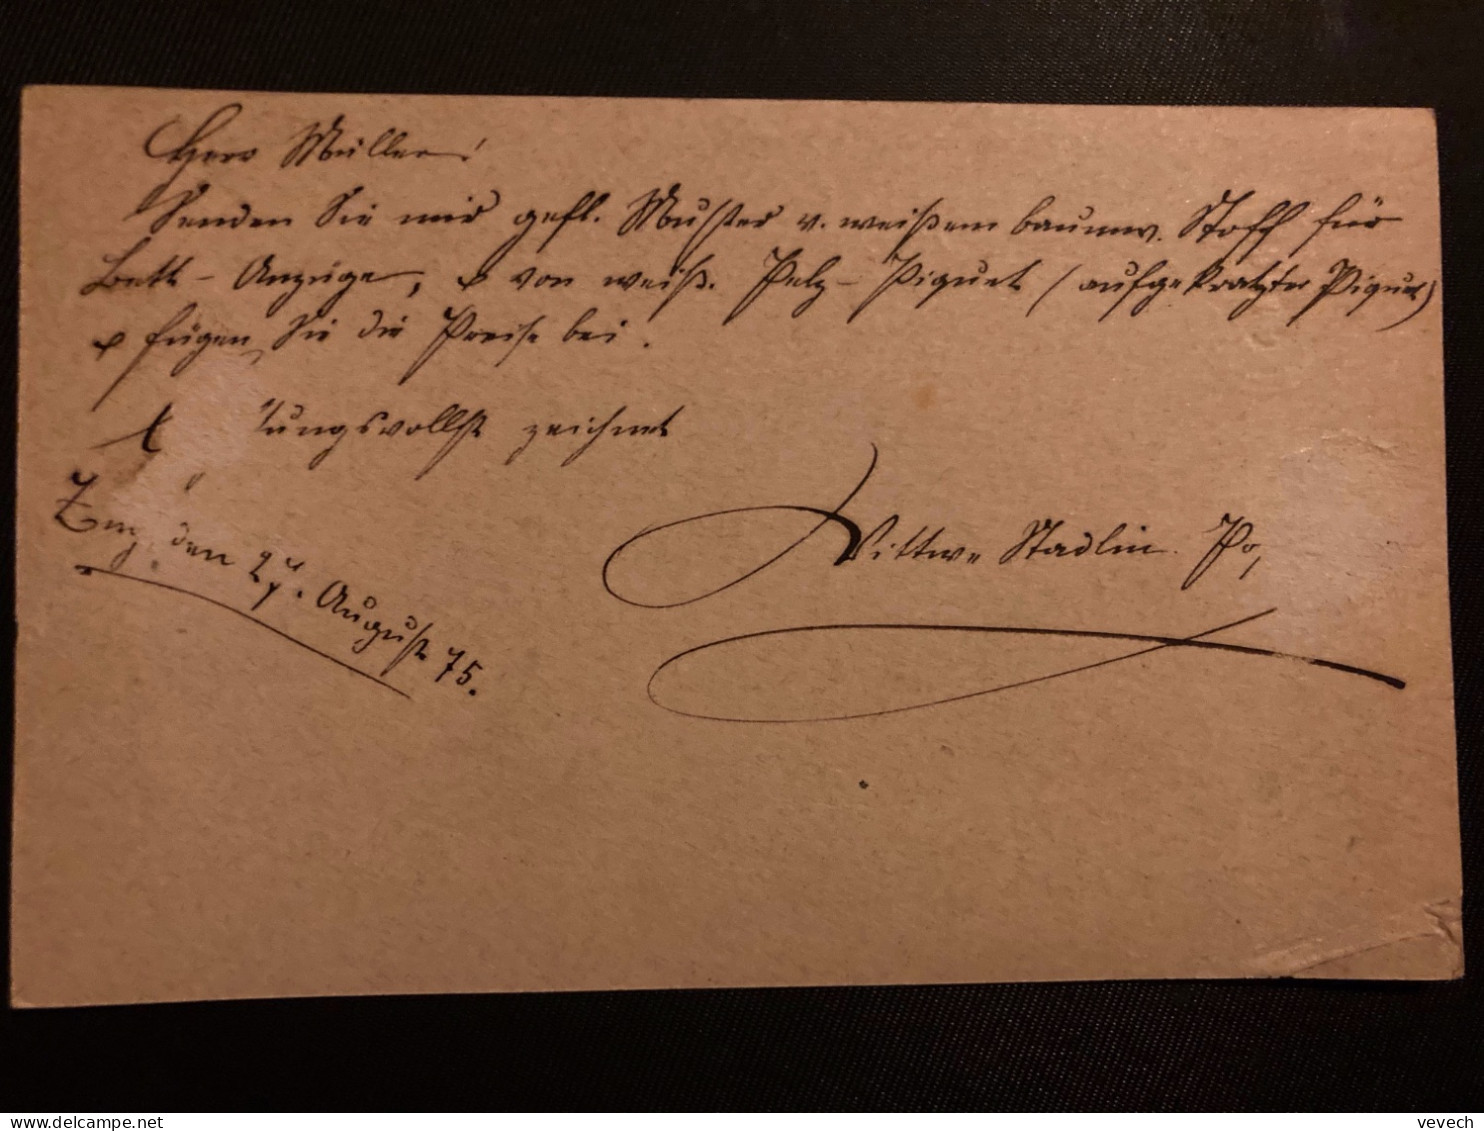 Herr Müller!
Senden Sie mir gefl. Muster v. weißem baumw. Stoff für
Bett-Anzüge, & von weiß. Pelz-Piquet (aufgekratzter Piquet)
& fügen Sie die Preise bei.
tungsvollst zeichnet
Zug, den 27. August 75.
Wittwe Stadlin.
vevech